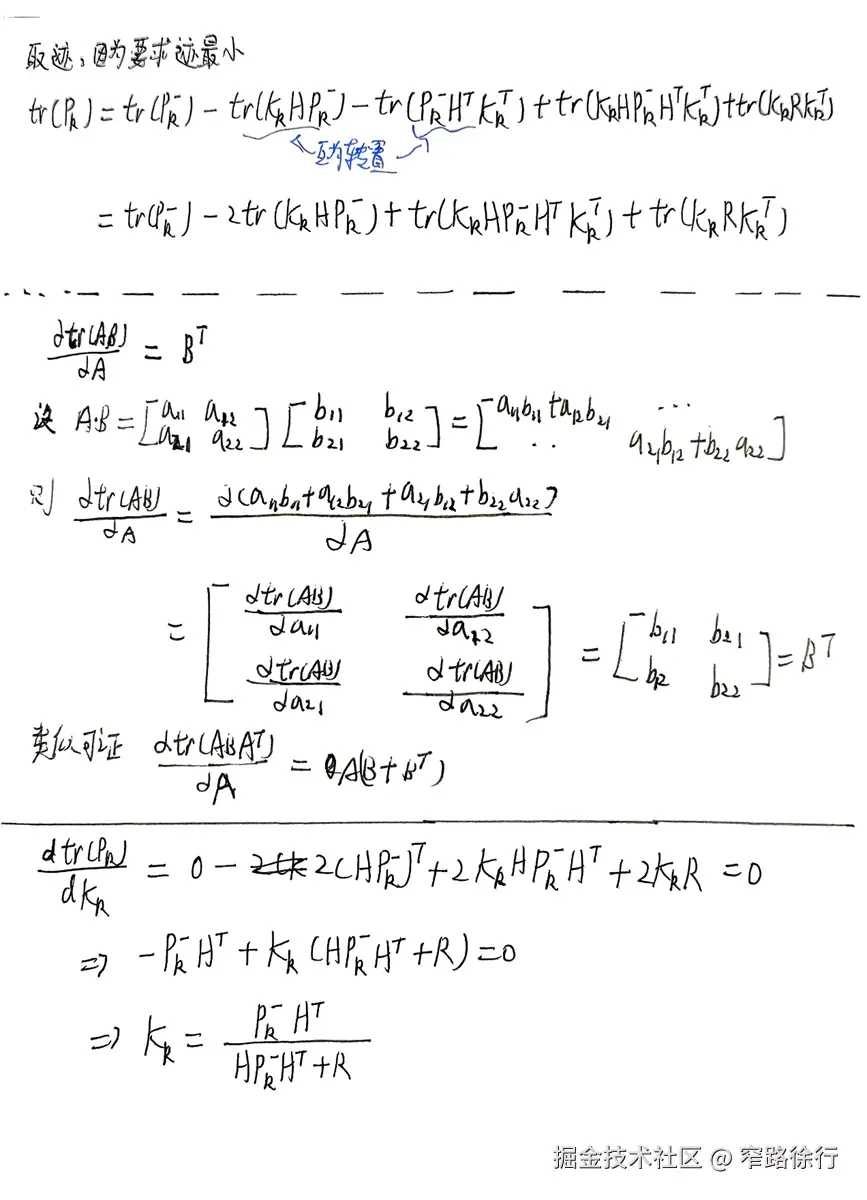 取迹，因为要求迹最小
tr(P_k) = tr(P_k^-) - tr(K_k H P_k^-) - tr(P_k^- H^T K_k^T) + tr(K_k H P_k^- H^T K_k^T) + tr(K_k R K_k^T)
互为转置
= tr(P_k^-) - 2tr(K_k H P_k^-) + tr(K_k H P_k^- H^T K_k^T) + tr(K_k R K_k^T)
dtr(AB)/dA = B^T
设 A·B = [a11 a12; a21 a22] [b11 b12; b21 b22] = [a11b11+a12b21 ...; .. a21b12+b22a22]
则 dtr(AB)/dA = d(a11b11+a12b21+a21b12+b22a22)/dA
= [dtr(AB)/da11 dtr(AB)/da12; dtr(AB)/da21 dtr(AB)/da22] = [b11 b21; b12 b22] = B^T
类似可证 dtr(ABA^T)/dA = A(B+B^T)
dtr(P_k)/dK_k = 0 - 2(HP_k^-)^T + 2K_k H P_k^- H^T + 2K_k R = 0
=> -P_k^- H^T + K_k (HP_k^- H^T + R) = 0
=> K_k = P_k^- H^T / (HP_k^- H^T + R)
掘金技术社区 @ 窄路徐行